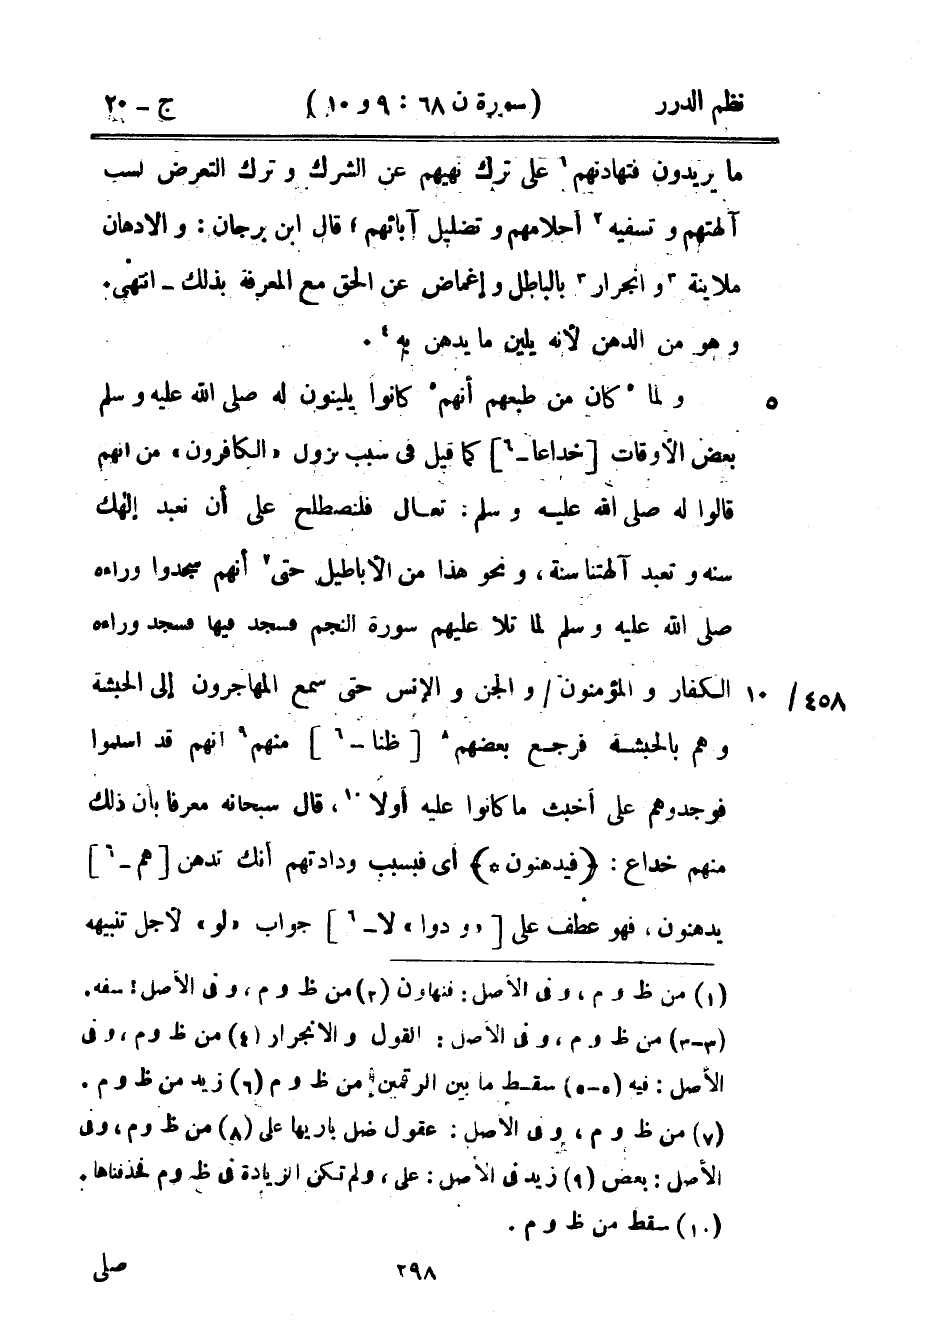 نظم الدرر (سورة ن ٦٨ : ٩ و ١٠) ج – ٢٠
ما يريدون فتهادنهم١ على ترك نهيهم عن الشرك و ترك التعرض لسب
آلهتهم و تسفيه٢ أحلامهم و تضليل آبائهم ؛ قال ابن برجان : و الادهان
ملاينة ٣ و انجرار٣ بالباطل و إغماض عن الحق مع المعرفة بذلك – انتهى .
و هو من الدهن لأنه يلين ما يدهن به٤ .
٥ و لما ٥كان من طبعهم أنهم٥ كانوا يلينون له صلى الله عليه و سلم
بعض الأوقات [خداعا–٦] كما قيل فى سبب نزول «الكافرون» من انهم
قالوا له صلى الله عليه و سلم : تعال فلنصطلح على أن نعبد إلهك
سنه و تعبد آلهتنا سنة ، و نحو هذا من الأباطيل حتى٧ أنهم سجدوا وراءه
صلى الله عليه و سلم لما تلا عليهم سورة النجم فسجد فيها فسجد وراءه
٤٥٨/ ١٠ الكفار و المؤمنون / و الجن و الإنس حتى سمع المهاجرون إلى الحبشة
و هم بالحبشة فرجع بعضهم٨ [ ظنا –٦ ] منهم٩ انهم قد اسلموا
فوجدوهم على أخبث ما كانوا عليه أولا١٠ ، قال سبحانه معرفا بأن ذلك
منهم خداع : ﴿فيدهنون ٥﴾ أى فبسبب ودادتهم أنك تدهن [هم –٦]
يدهنون ، فهو عطف على [«و دوا» لا–٦ ] جواب «لو» لأجل تنبيهه
(١) من ظ و م ، و فى الأصل : فنهاون (٢) من ظ و م ، و فى الأصل : سفه .
(٣–٣) من ظ و م ، و فى الأصل : القول و الانجرار (٤) من ظ و م ، و فى
الأصل : فيه (٥–٥) سقط ما بين الرقمين من ظ و م (٦) زيد من ظ و م .
(٧) من ظ و م ، و فى الأصل : عقول ضل باريها على (٨) من ظ و م ، و فى
الأصل : بعض (٩) زيد فى الأصل : على ، و لم تكن الزيادة فى ظ و م فحذفناها .
(١٠) سقط من ظ و م .
٢٩٨ صلى